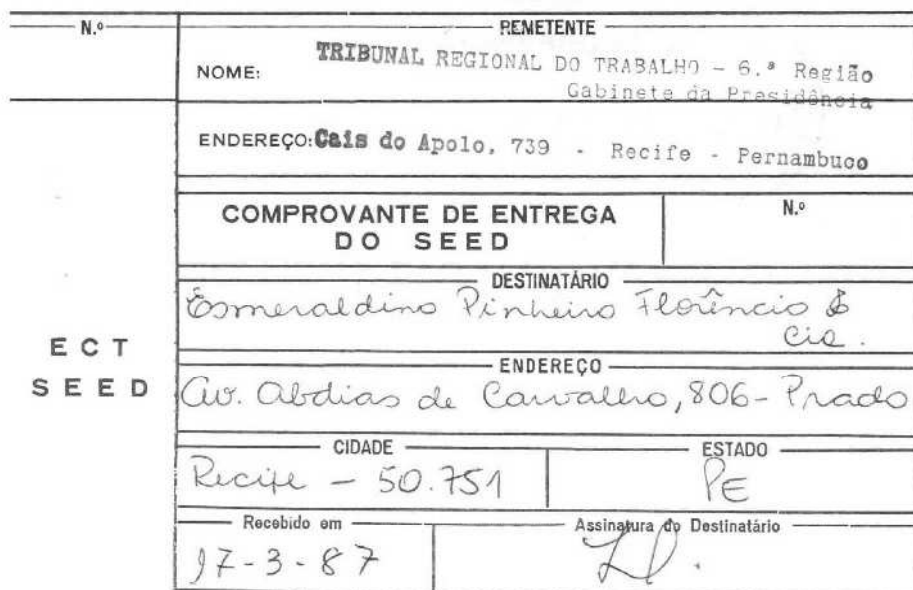 N.º
REMETENTE
NOME: TRIBUNAL REGIONAL DO TRABALHO - 6.ª Região
Gabinete da Presidência
ENDEREÇO: Cais do Apolo, 739 - Recife - Pernambuco
COMPROVANTE DE ENTREGA
DO SEED
N.º
DESTINATÁRIO
Esmeraldino Pinheiro Florêncio &
Cia.
ECT
SEED
ENDEREÇO
Av. Abdias de Carvalho, 806 - Prado
CIDADE
Recife - 50.751
ESTADO
PE
Recebido em
17-3-87
Assinatura do Destinatário